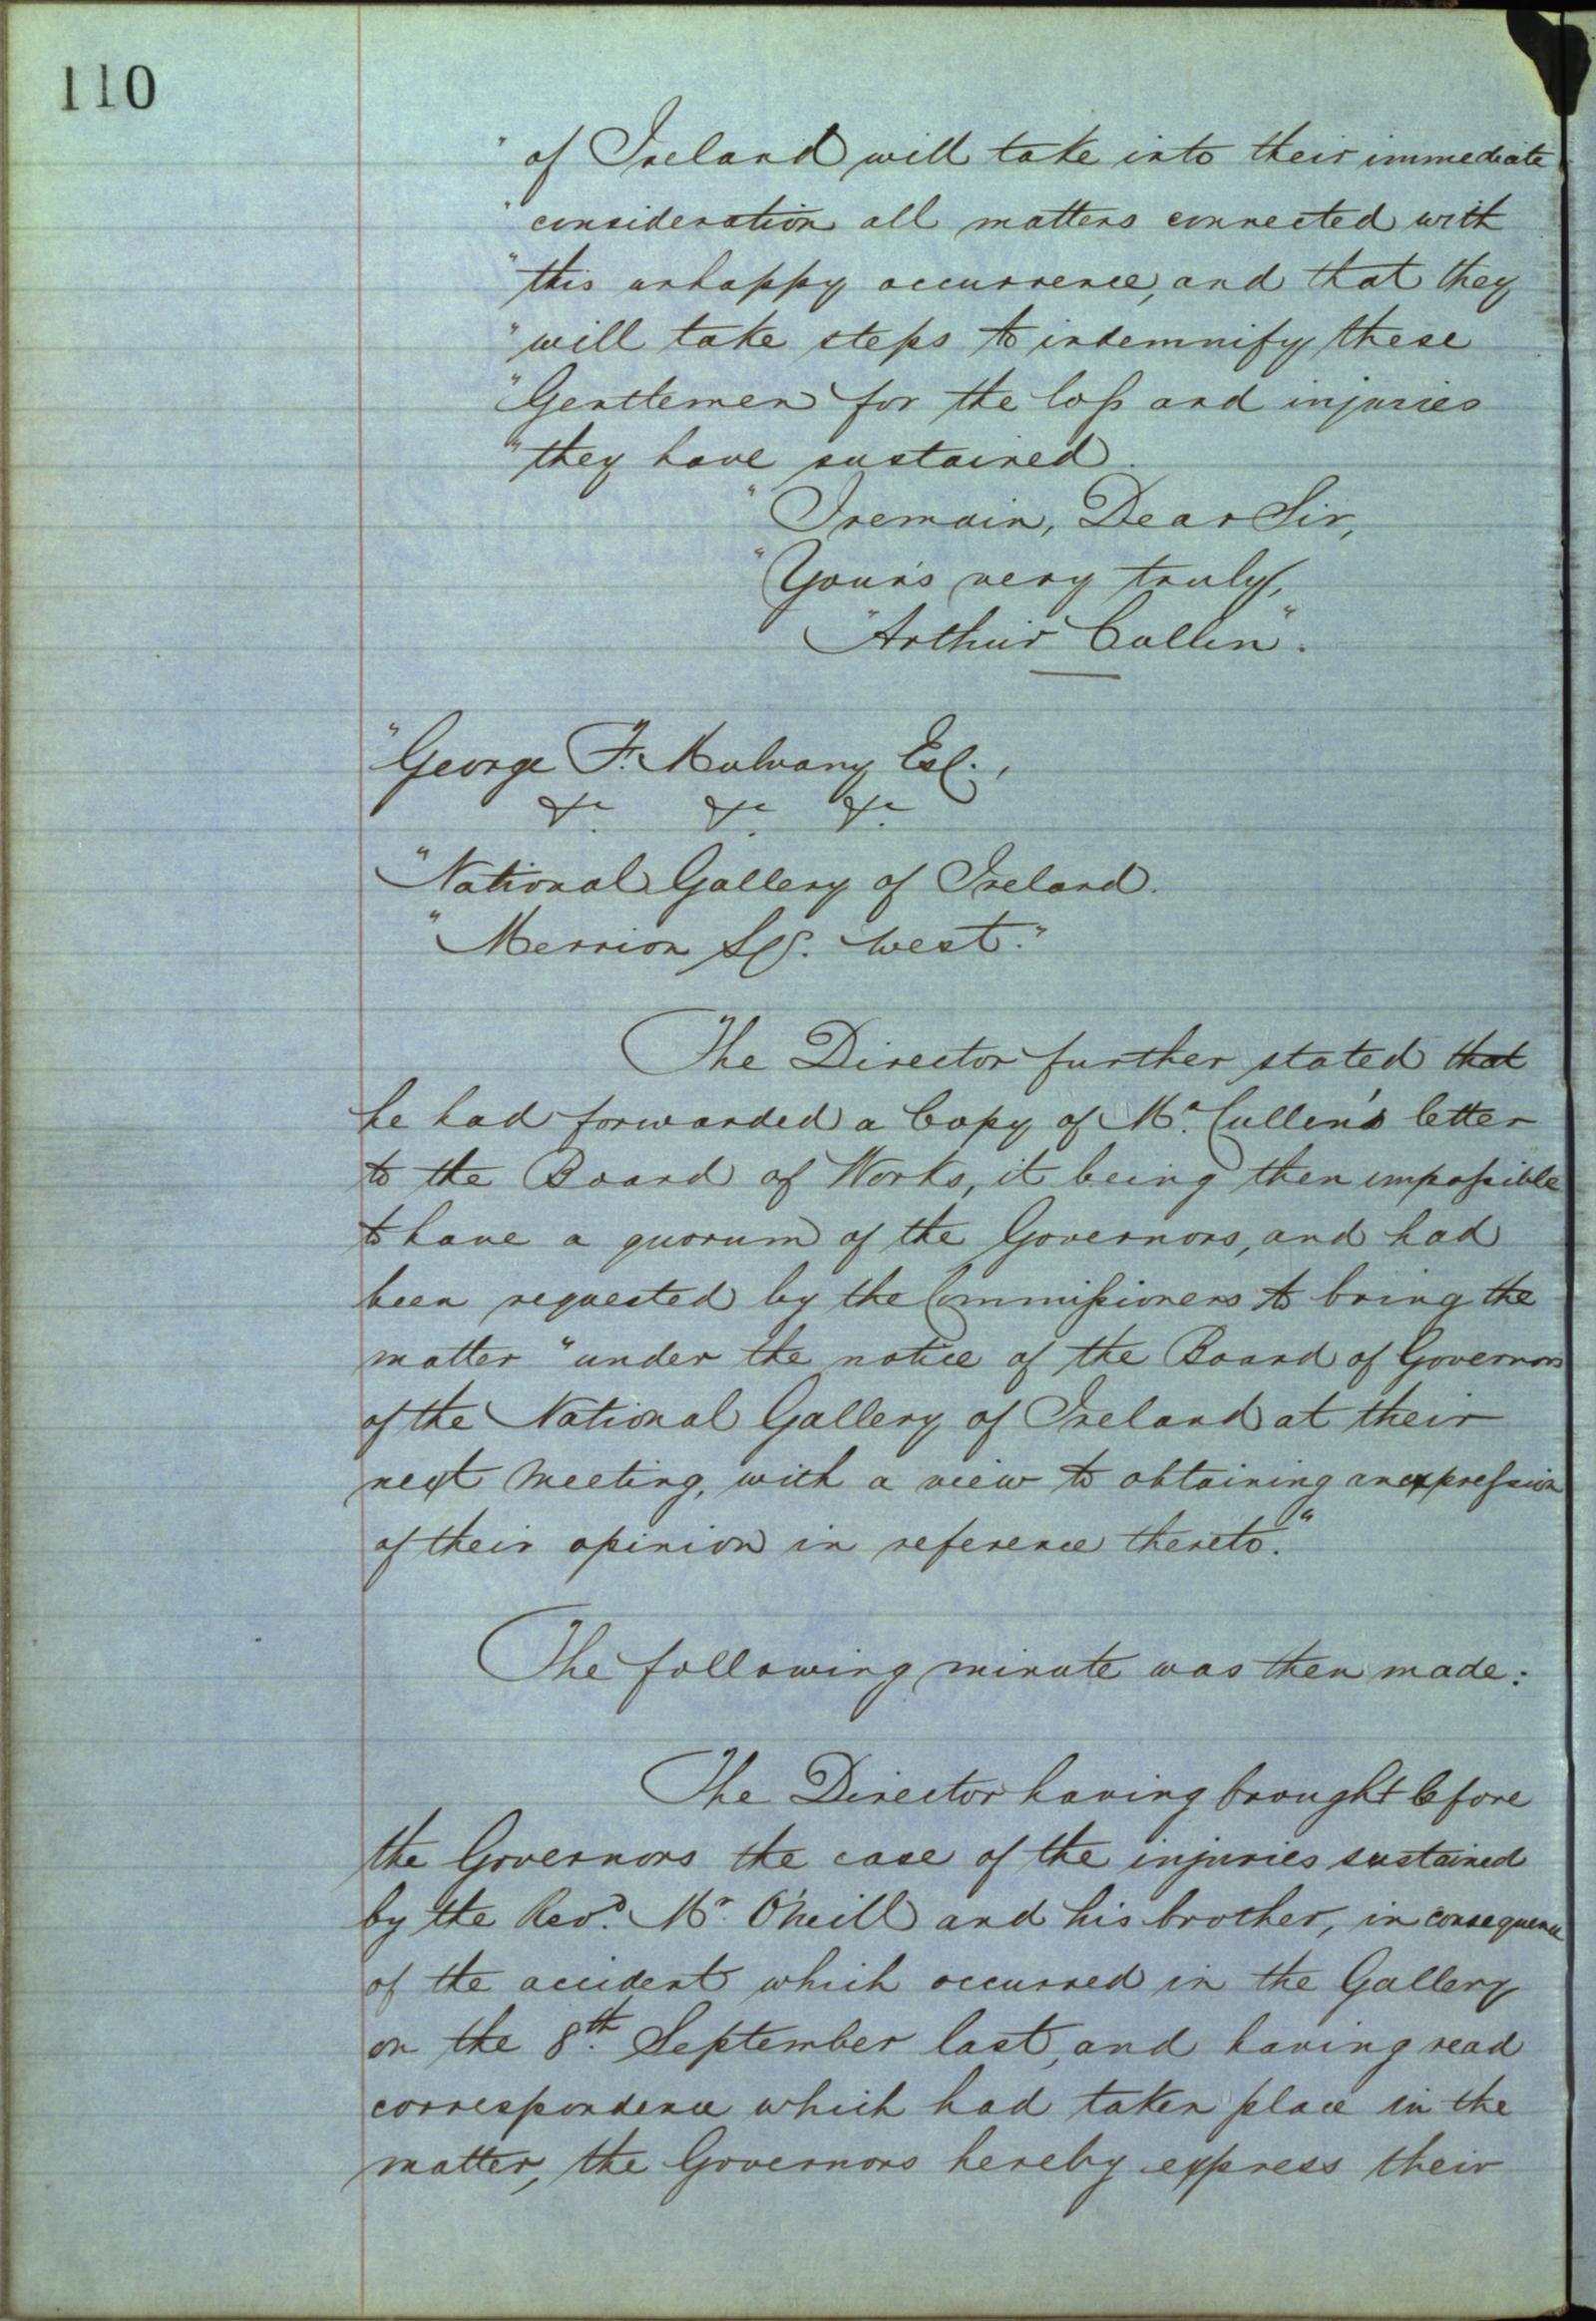 110
" of Ireland will take into their immediate
" consideration all matters connected with
" this unhappy occurrence, and that they
" will take steps to indemnify these
" Gentlemen for the loss and injuries
" they have sustained.
" I remain, Dear Sir,
" Your's very truly,
" Arthur Cullen".
" George F. Mulvany Esq.,
&c. &c. &c.
" National Gallery of Ireland.
" Merrion Sq. West."
The Director further stated that
he had forwarded a Copy of Mr. Cullen's letter
to the Board of Works, it being then impossible
to have a quorum of the Governors, and had
been requested by the Commissioners to bring the
matter "under the notice of the Board of Governors
of the National Gallery of Ireland at their
next Meeting, with a view to obtaining an expression
of their opinion in reference thereto."
The following minute was then made:
The Director having brought before
the Governors the case of the injuries sustained
by the Revd. Mr. O'Neill and his brother, in consequence
of the accident which occurred in the Gallery
on the 8th. September last, and having read
correspondence which had taken place in the
matter, the Governors hereby express their